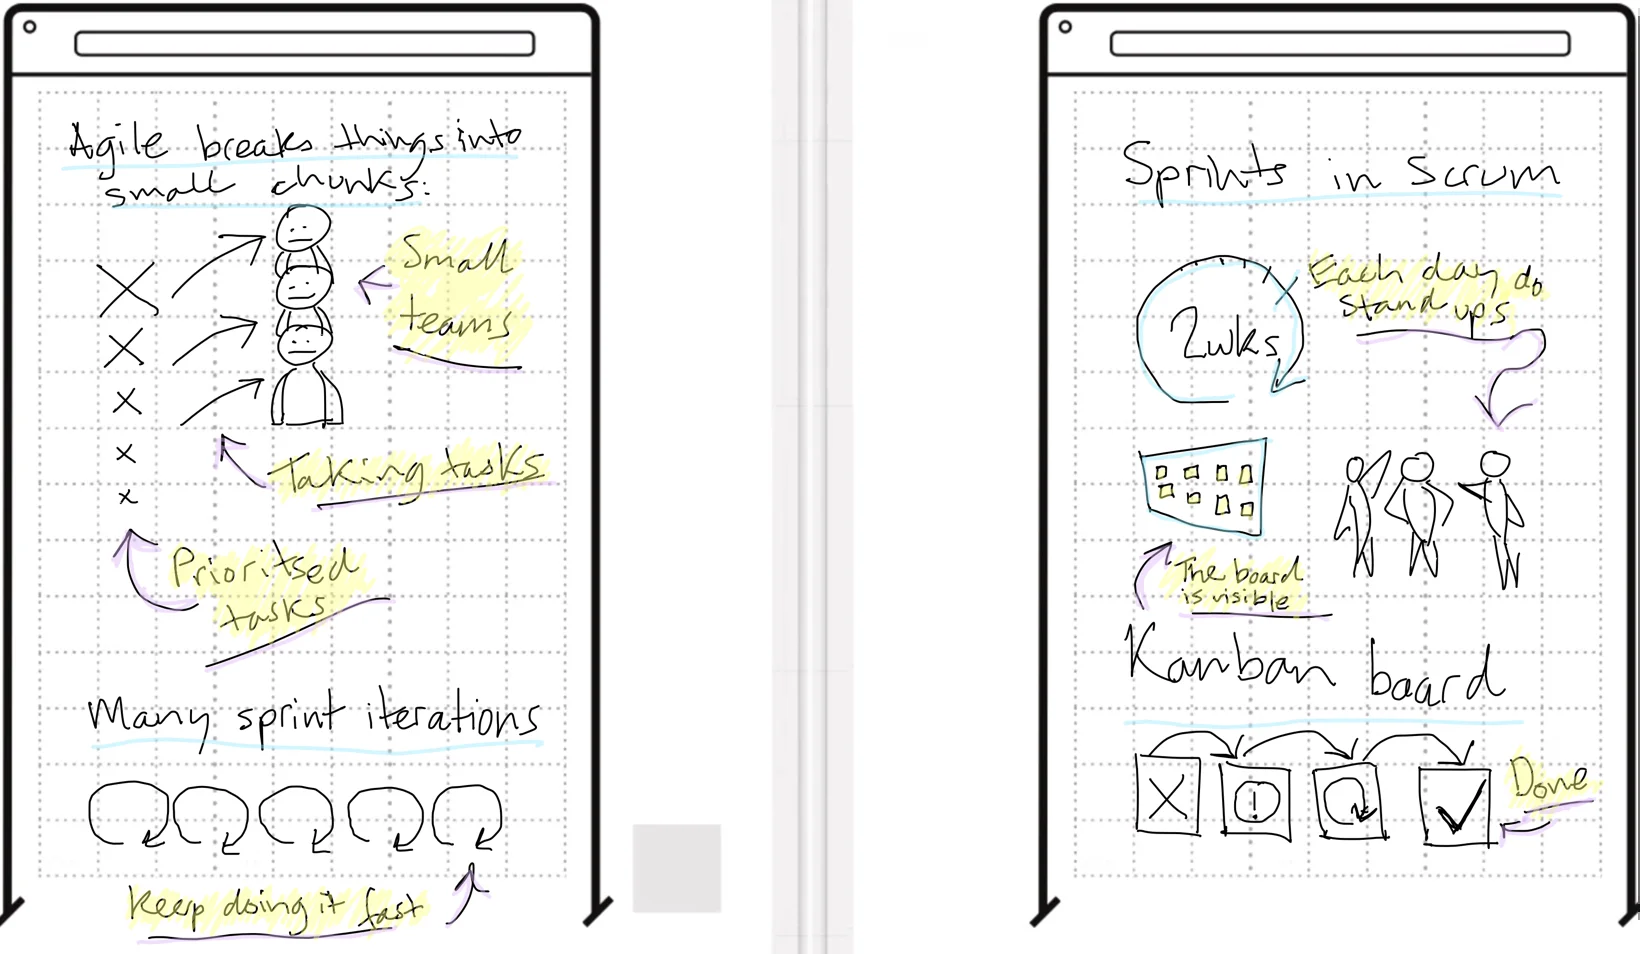 Agile breaks things into
small chunks:
Small
teams
Taking tasks
Prioritsed
tasks
Many sprint iterations
Keep doing it fast
Sprints in Scrum
Each day do
stand ups
2wks
The board
is visible
Kanban board
Done